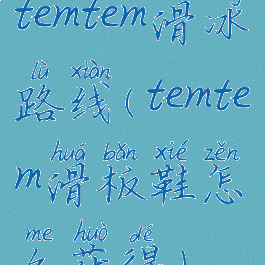 temtem滑冰
lù xiàn
路线(temte
huá bǎn xié zěn
m滑板鞋怎
me huò dé
么获得)